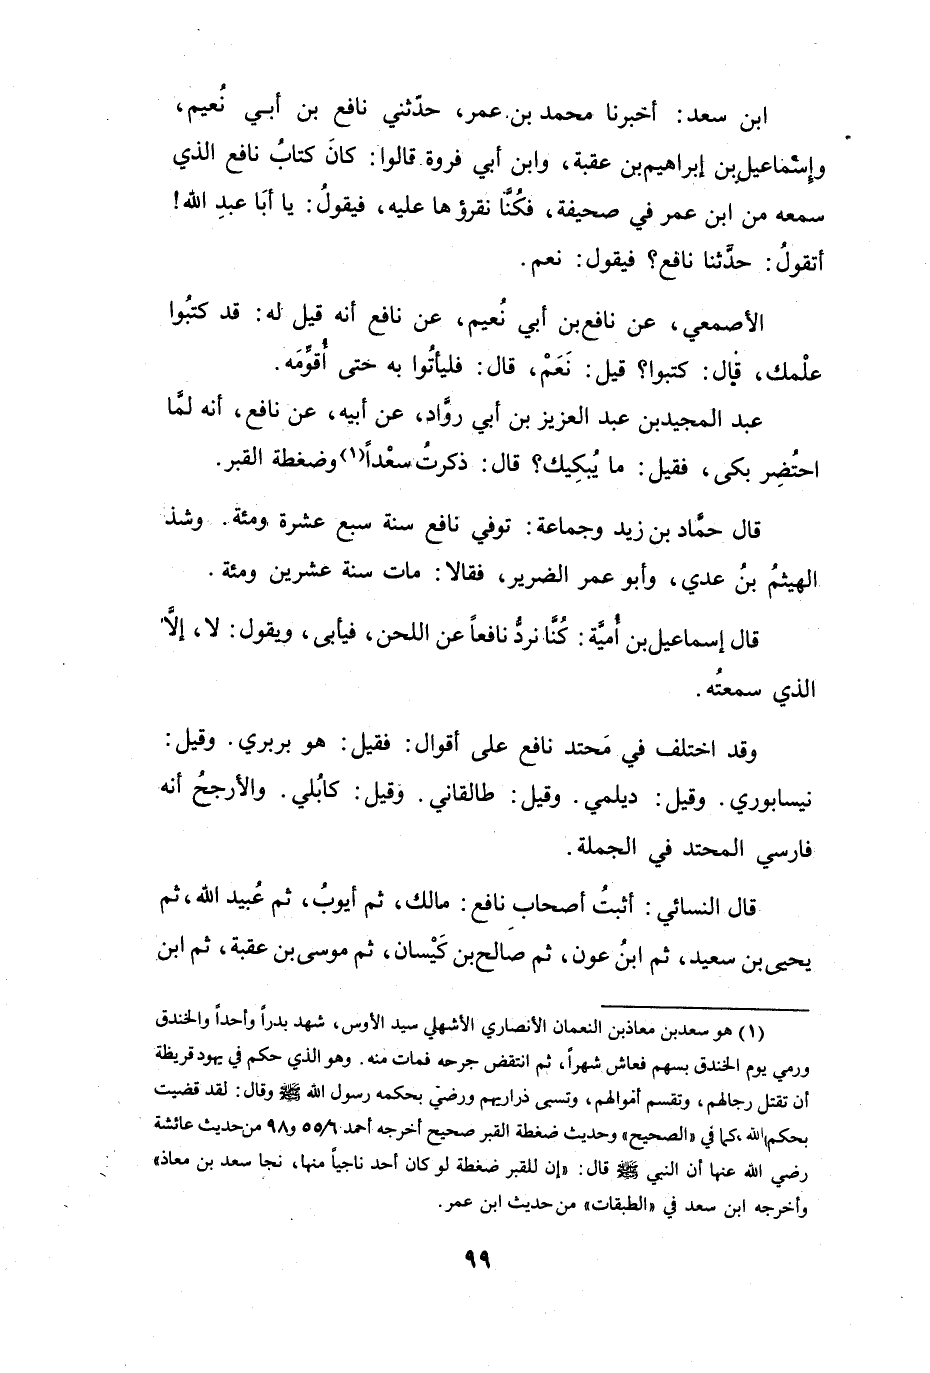 ابن سعد: أخبرنا محمد بن عمر، حدّثني نافع بن أبي نُعيم،
وإِسْماعيل بن إبراهيم بن عقبة، وابن أبي فروة قالوا: كانَ كتابُ نافع الذي
سمعه من ابن عمر في صحيفة، فكُنَّا نقرؤها عليه، فيقولُ: يا أبَا عبدِ الله!
أتقولُ: حدَّثنا نافع؟ فيقول: نعم.
الأصمعي، عن نافع بن أبي نُعيم، عن نافع أنه قيل له: قد كتبُوا
علْمك، قال: كتبوا؟ قيل: نَعَمْ، قال: فليأتُوا به حتى أُقوِّمَه.
عبد المجيد بن عبد العزيز بن أبي روَّاد، عن أبيه، عن نافع، أنه لمَّا
احتُضِر بكى، فقيل: ما يُبكِيك؟ قال: ذكرتُ سعْداً(١) وضغطة القبر.
قال حمَّاد بن زيد وجماعة: توفي نافع سنة سبع عشرة ومئة. وشذ
الهيثمُ بنُ عدي، وأبو عمر الضرير، فقالا: مات سنة عشرين ومئة.
قال إسماعيل بن أُميَّة: كُنَّا نردُّ نافعاً عن اللحن، فيأبى، ويقول: لا، إلاَّ
الذي سمعتُه.
وقد اختلف في مَحتد نافع على أقوال: فقيل: هو بربري. وقيل:
نيسابوري. وقيل: ديلمي. وقيل: طالقاني. وقيل: كابُلي. والأرجحُ أنه
فارسي المحتد في الجملة.
قال النسائي: أثبتُ أصحابِ نافع: مالك، ثم أيوبُ، ثم عُبيد الله، ثم
يحيى بن سعيد، ثم ابنُ عون، ثم صالح بن كَيْسان، ثم موسى بن عقبة، ثم ابن
(١) هو سعد بن معاذ بن النعمان الأنصاري الأشهلي سيد الأوس، شهد بدراً وأحداً والخندق
ورمي يوم الخندق بسهم فعاش شهراً، ثم انتقض جرحه فمات منه. وهو الذي حكم في يهود قريظة
أن تقتل رجالهم، وتقسم أموالهم، وتسبى ذراريهم ورضي بحكمه رسول الله ﷺ وقال: لقد قضيت
بحكم الله، كما في «الصحيح» وحديث ضغطة القبر صحيح أخرجه أحمد ٥٥/٦ و٩٨ من حديث عائشة
رضي الله عنها أن النبي ﷺ قال: «إن للقبر ضغطة لو كان أحد ناجياً منها، نجا سعد بن معاذ»
وأخرجه ابن سعد في «الطبقات» من حديث ابن عمر.
٩٩